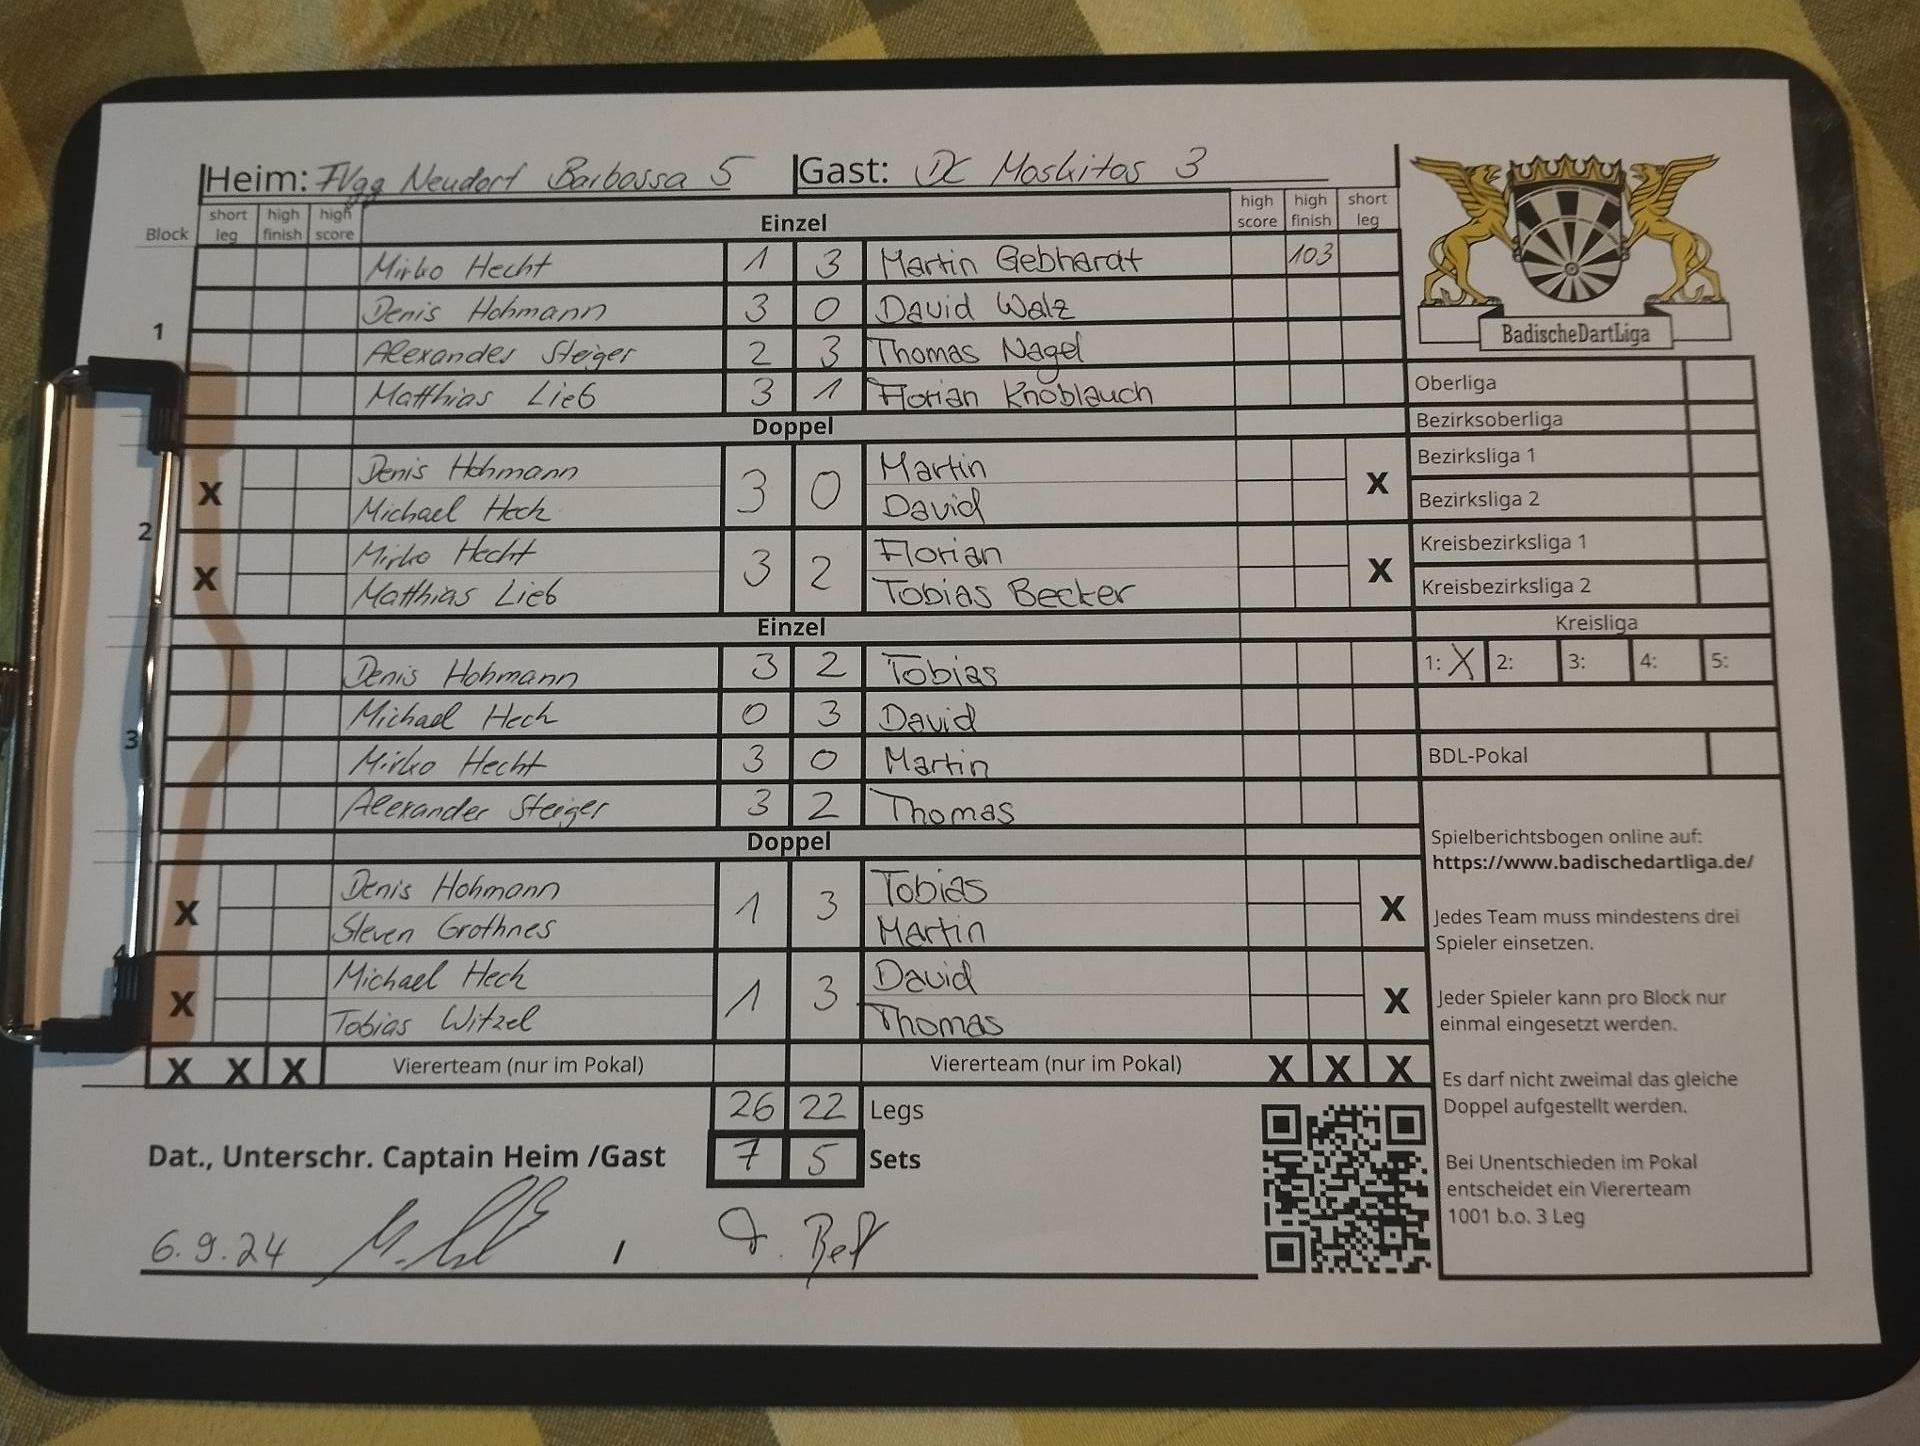 Heim: FVgg Neudorf Barbossa 5 Gast: DC Moskitos 3
Block short leg high finish high score Einzel high score high finish short leg
Mirko Hecht 1 3 Martin Gebhardt 103
1 Denis Hohmann 3 0 David Walz
Alexander Steiger 2 3 Thomas Nagel
Matthias Lieb 3 1 Florian Knoblauch
Doppel
Denis Hohmann Martin
X 3 0 X
Michael Heck David
2
Mirko Hecht Florian
X 3 2 X
Matthias Lieb Tobias Becker
Einzel
Denis Hohmann 3 2 Tobias
Michael Heck 0 3 David
3
Mirko Hecht 3 0 Martin
Alexander Steiger 3 2 Thomas
Doppel
Denis Hohmann Tobias
X 1 3 X
Steven Grothnes Martin
4
Michael Heck David
X 1 3 X
Tobias Witzel Thomas
X X X Vierterteam (nur im Pokal) Vierterteam (nur im Pokal) X X X
26 22 Legs
Dat., Unterschr. Captain Heim /Gast 7 5 Sets
6.9.24 /
BadischeDartLiga
Oberliga
Bezirksoberliga
Bezirksliga 1
Bezirksliga 2
Kreisbezirksliga 1
Kreisbezirksliga 2
Kreisliga
1: X 2: 3: 4: 5:
BDL-Pokal
Spielberichtsbogen online auf:
https://www.badischedartliga.de/
Jedes Team muss mindestens drei
Spieler einsetzen.
Jeder Spieler kann pro Block nur
einmal eingesetzt werden.
Es darf nicht zweimal das gleiche
Doppel aufgestellt werden.
Bei Unentschieden im Pokal
entscheidet ein Viererteam
1001 b.o. 3 Leg